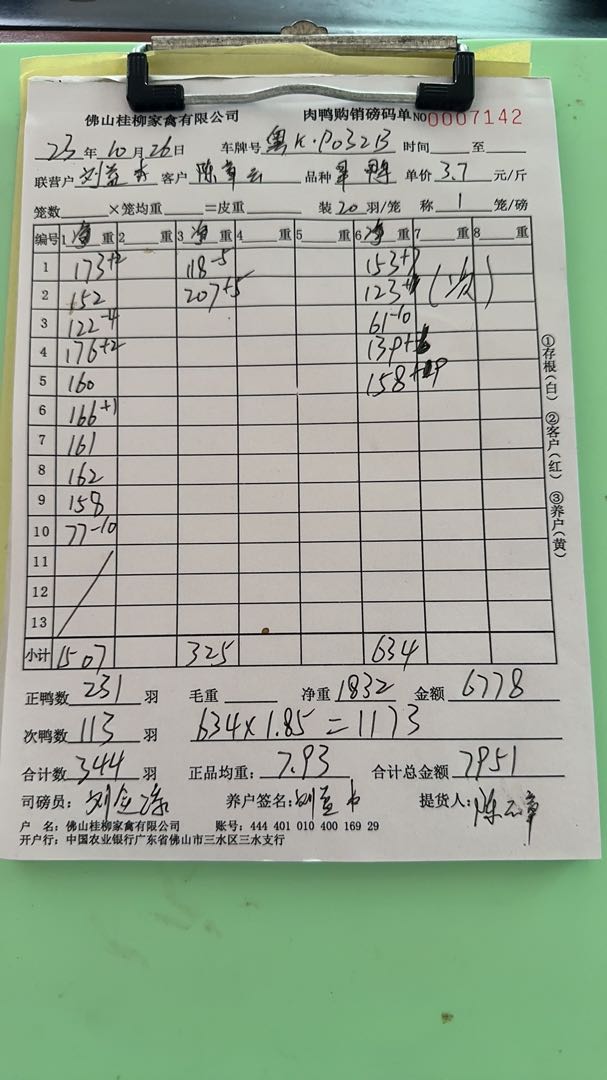 佛山桂柳家禽有限公司 肉鸭购销磅码单 NO 0007142
23年10月26日 车牌号 粤K·P032B 时间 至
联营户 刘益 客户 陈章云 品种 鸭 单价 3.7 元/斤
笼数 ×笼均重 =皮重 装 20 羽/笼 称 1 笼/磅
编号 1 净重 2 重 3 净重 4 重 5 重 6 净重 7 重 8 重
1 173+2 118-5 153+7
2 152 207+5 123+
3 122-4 61-10
4 176+2 139+
5 160 158+
6 166+1
7 161
8 162
9 158
10 77-10
11
12
13
小计 1507 325 634
①存根(白) ②客户(红) ③养户(黄)
正鸭数 231 羽 毛重 净重 1832 金额 6778
次鸭数 113 羽 634×1.85=1173
合计数 344 羽 正品均重: 7.93 合计总金额 7951
司磅员: 刘 养户签名: 刘益 提货人: 陈云章
户 名: 佛山桂柳家禽有限公司 账号: 444 401 010 400 169 29
开户行: 中国农业银行广东省佛山市三水区三水支行